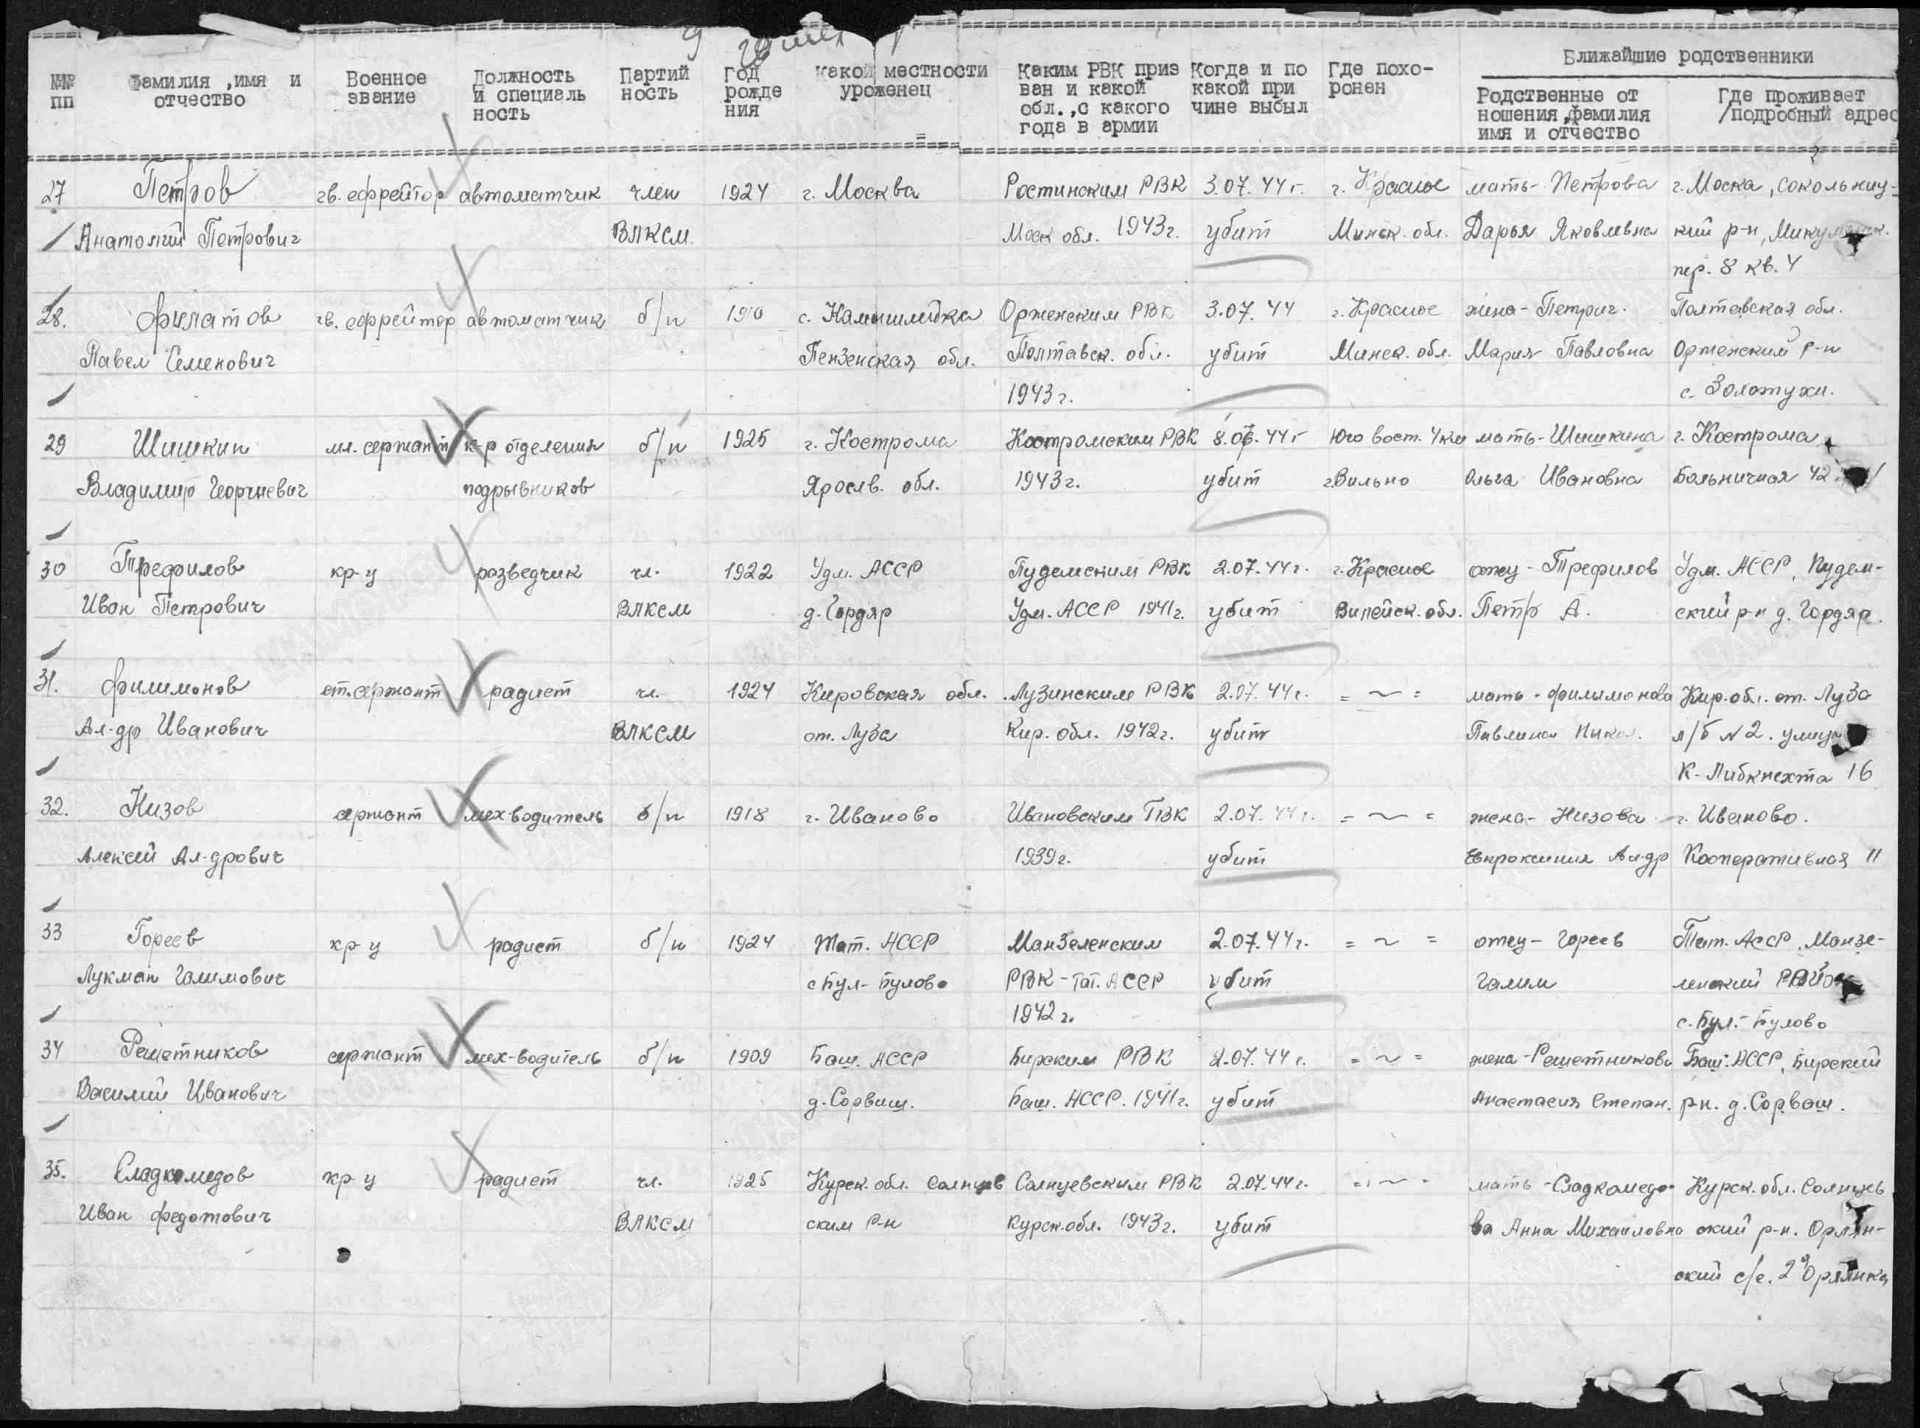 №№ пп
Фамилия ,имя и отчество
Военное звание
Должность и специаль ность
Партий ность
Год рожде ния
какой местности уроженец
Каким РВК приз ван и какой обл.,с какого года в армии
Когда и по какой при чине выбыл
Где похо- ронен
Ближайшие родственники
Родственные от ношения,фамилия имя и отчество
Где проживает /подробный адрес
27 Петров гв. ефрейтор автоматчик член 1924 г. Москва Ростинским РВК 3.07.44г. г. Красное мать- Петрова г. Моска, Сокольниц-
Анатолий Петрович ВЛКСМ. Моск обл. 1943г. убит Минск. обл. Дарья Яковлевна кий р-н,
пер. 8 кв. 4
28. Филатов гв. ефрейтор автоматчик б/п 1910 с. Камышлейка Орженским РВК 3.07.44 г. Красное жена- Петрич. Полтавская обл.
Павел Семенович Пензенская обл. Полтавск. обл. убит Минск. обл. Мария Павловна Орженский р-н
1943г. с. Золотухи.
29 Шишкин мл. сержант к-р отделения б/п 1925 г. Кострома Костромским РВК 8.07.44г Юго вост. 4км мать- Шишкина г. Кострома
Владимир Георгиевич подрывников Яросл. обл. 1943г. убит г.Вильно Ольга Ивановна Больничная 42.
30 Трефилов кр-ц разведчик чл. 1922 Удм. АССР Пудемским РВК 2.07.44г. г. Красное отец - Трефилов Удм. АССР, Пудем-
Иван Петрович ВЛКСМ д. Гордяр Удм. АССР 1941г. убит Вилейск. обл. Петр А. ский р-н д. Гордяр.
31. Филимонов ст. сержант радист чл. 1924 Кировская обл. Лузинским РВК 2.07.44г. = ~ = мать - Филимонова Кир. обл. ст. Луза
Ал-др Иванович ВЛКСМ ст. Луза Кир. обл. 1942г. убит Павлина Никол. л/б №2. улица
К. Либкнехта 16
32. Низов сержант мех-водитель б/п 1918 г. Иваново Ивановским ГВК 2.07.44г. = ~ = жена- Низова г. Иваново.
Алексей Ал-дрович 1939г. убит Евпроксиния Ал-др Кооперативная 11
33 Гореев кр-ц радист б/п 1924 Тат. АССР Манзеленским 2.07.44г. = ~ = отец- Гореев Тат. АССР, Манзе-
Лукман Галимович с Бул- Булово РВК - Тат. АССР убит Галим ленский
1942г. с. Бул.- Булово
34 Решетников сержант мех-водитель б/п 1909 Баш. АССР Бирским РВК 2.07.44г. = ~ = жена - Решетникова Баш. АССР, Бирский
Василий Иванович д. Сорваш. Баш. АССР. 1941г. убит Анастасия Степан. р-н. д. Сорваш.
35. Сладкомедов кр-ц радист чл. 1925 Курск. обл. Солнцев Солнцевским РВК 2.07.44г. = ~ = мать - Сладкомедо- Курск. обл. Солнцев
Иван Федотович ВЛКСМ ским р-н Курск обл. 1943г. убит ва Анна Михайловна ский р-н. Орлян-
ский с/с. 2я Орлянка